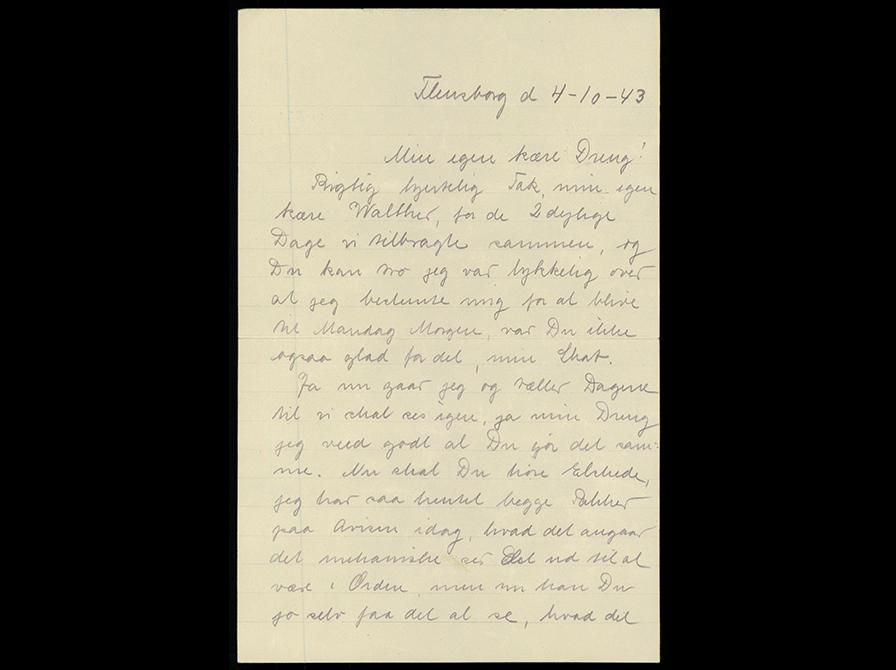 Flensborg d 4-10-43
Min egen kære Dreng!
Rigtig hjertelig Tak, min egen
kære Walther, for de 2 dejlige
Dage vi tilbragte sammen, og
Du kan tro jeg var lykkelig over
at jeg bestemte mig for at blive
til Mandag Morgen, var Du ikke
ogsaa glad for det, min Skat.
Ja nu gaar jeg og tæller Dagene
til vi skal ses igen, ja min Dreng
jeg veed godt at Du gør det sam=
me. Nu skal Du høre Elskede,
jeg har saa hentet begge Pakker
paa Avisen idag, hvad det angaar
det mekaniske ser det ud til at
være i Orden, men nu kan Du
jo selv faa det at se, hvad det